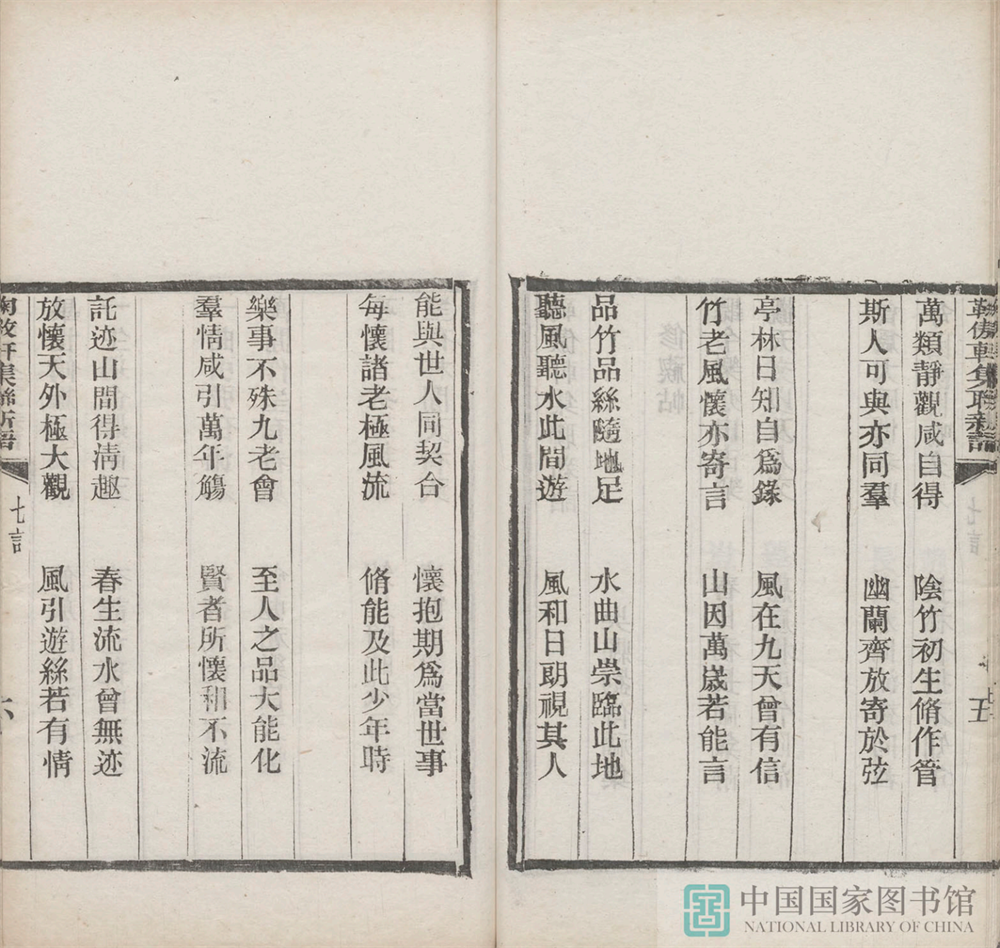 軒集聯新語 五
萬類靜觀咸自得 陰竹初生脩作管
斯人可與亦同羣 幽蘭齊放寄於弦
亭林日知自爲錄 風在九天曾有信
竹老風懷亦寄言 山因萬歲若能言
品竹品絲隨地足 水曲山崇臨此地
聽風聽水此間遊 風和日朗視其人
能與世人同契合 懷抱期爲當世事
每懷諸老極風流 脩能及此少年時
樂事不殊九老會 至人之品大能化
羣情咸引萬年觴 賢者所懷和不流
託迹山間得淸趣 春生流水曾無迹
放懷天外極大觀 風引遊絲若有情
軒集聯新語 七言 六
中国国家图书馆
NATIONAL LIBRARY OF CHINA